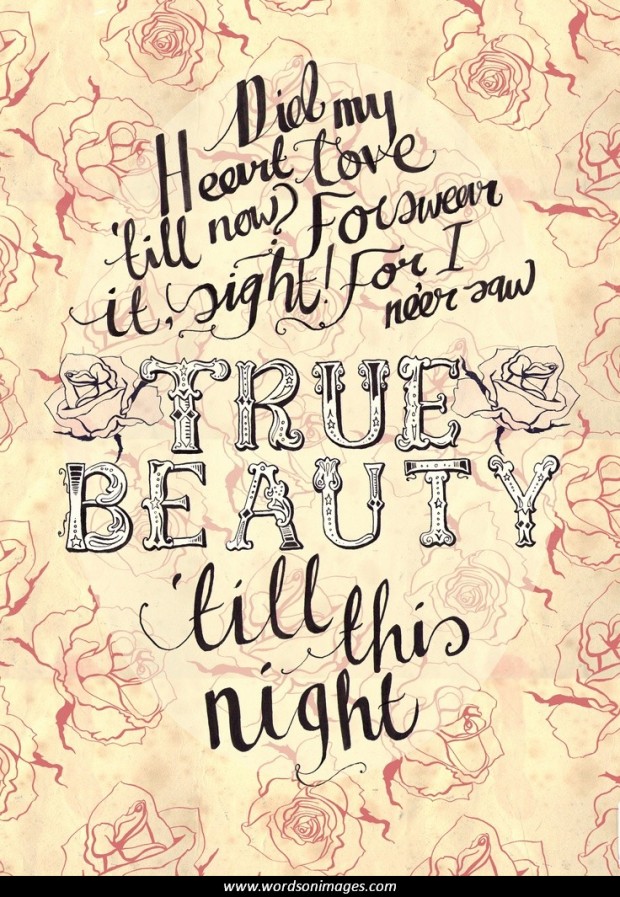 Did my
Heart love
'till now? Forswear
it, sight! For I
ne'er saw
TRUE
BEAUTY
'till this
night
www.wordsonimages.com